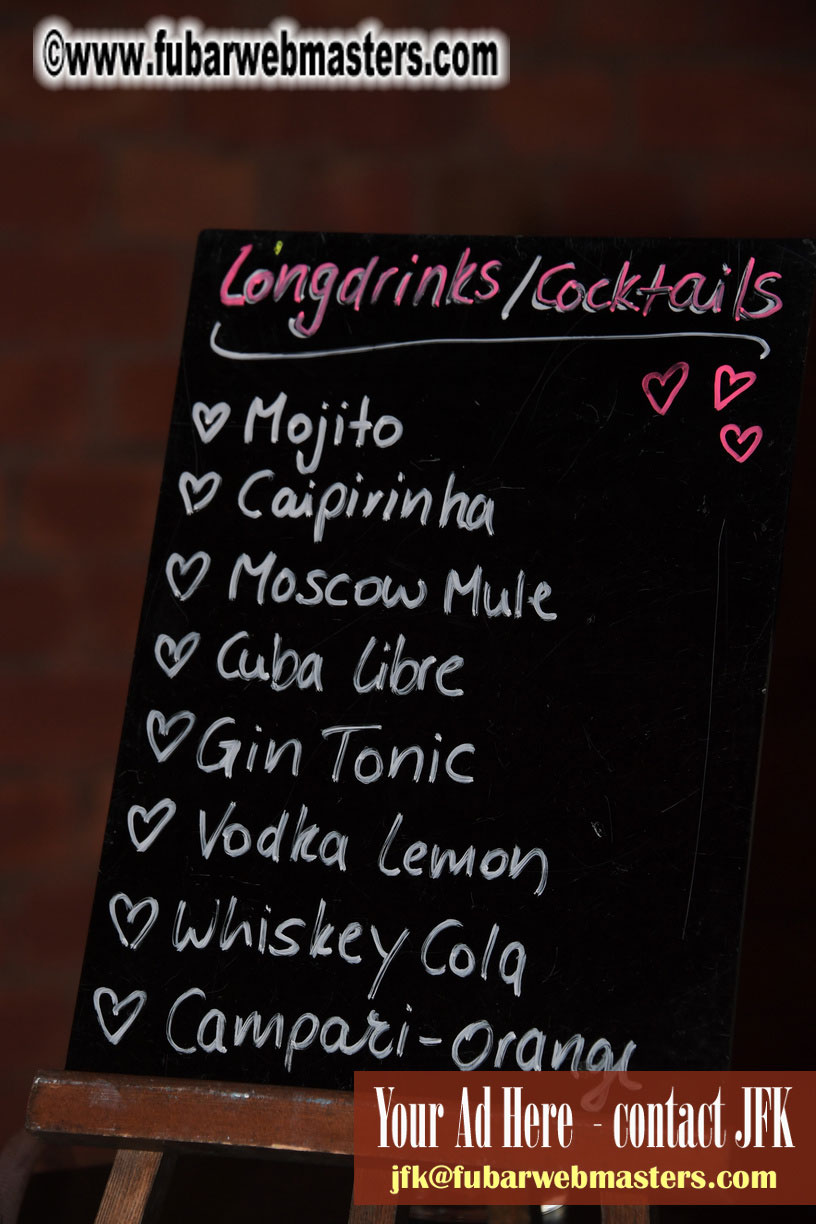 ©www.fubarwebmasters.com
Longdrinks/Cocktails
Mojito
Caipirinha
Moscow Mule
Cuba Libre
Gin Tonic
Vodka Lemon
Whiskey Cola
Campari-Orange
Your Ad Here - contact JFK
jfk@fubarwebmasters.com